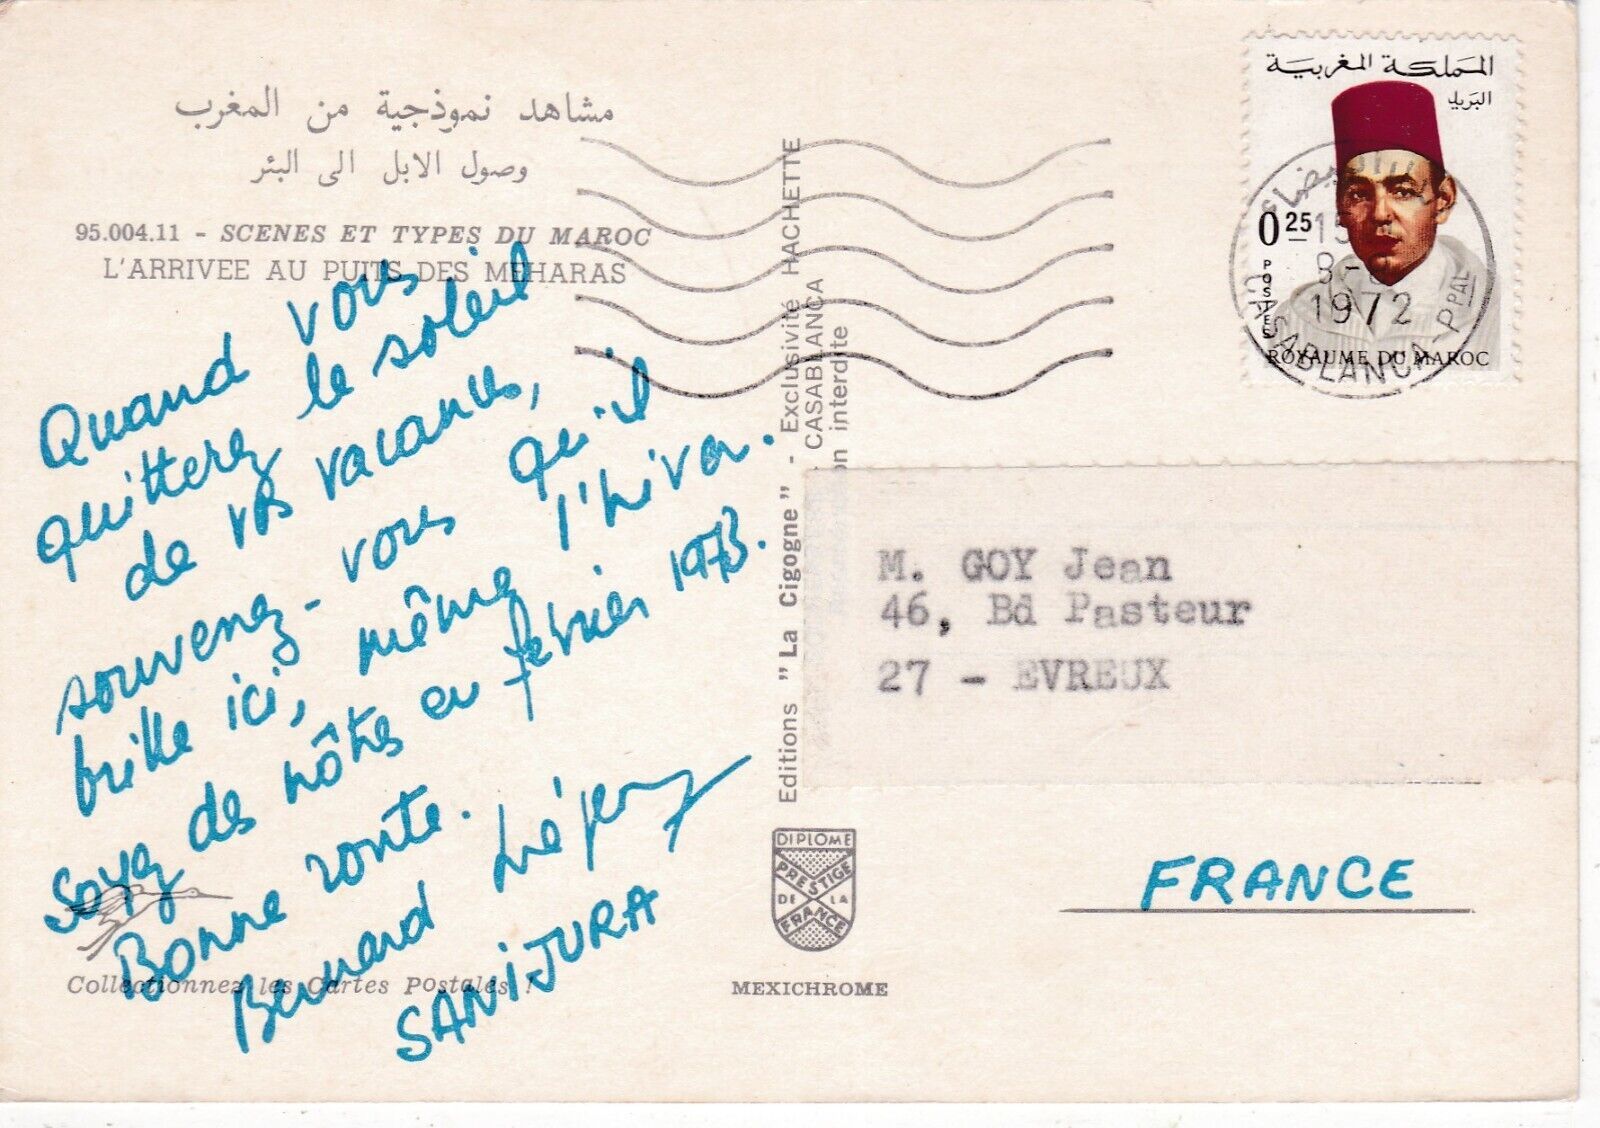 مشاهد نموذجية من المغرب
وصول الابل الى البئر
95.004.11 - SCENES ET TYPES DU MAROC
L'ARRIVEE AU PUITS DES MEHARAS
Quand vous
quitterez le soleil
de vos vacances,
souvenez-vous qu'il
brille ici, même l'hiver.
Soyez des nôtres en février 1973.
Bonne route.
Bernard
SANIJURA
Collectionnez les Cartes Postales !
Editions "La Cigogne" - Exclusivité HACHETTE
CASABLANCA
interdite
DIPLOME
PRESTIGE
DE LA
FRANCE
MEXICHROME
المملكة المغربية
البريد
0.25
POSTES
ROYAUME DU MAROC
15
1972
CASABLANCA-PPAL
M. GOY Jean
46, Bd Pasteur
27 - EVREUX
FRANCE